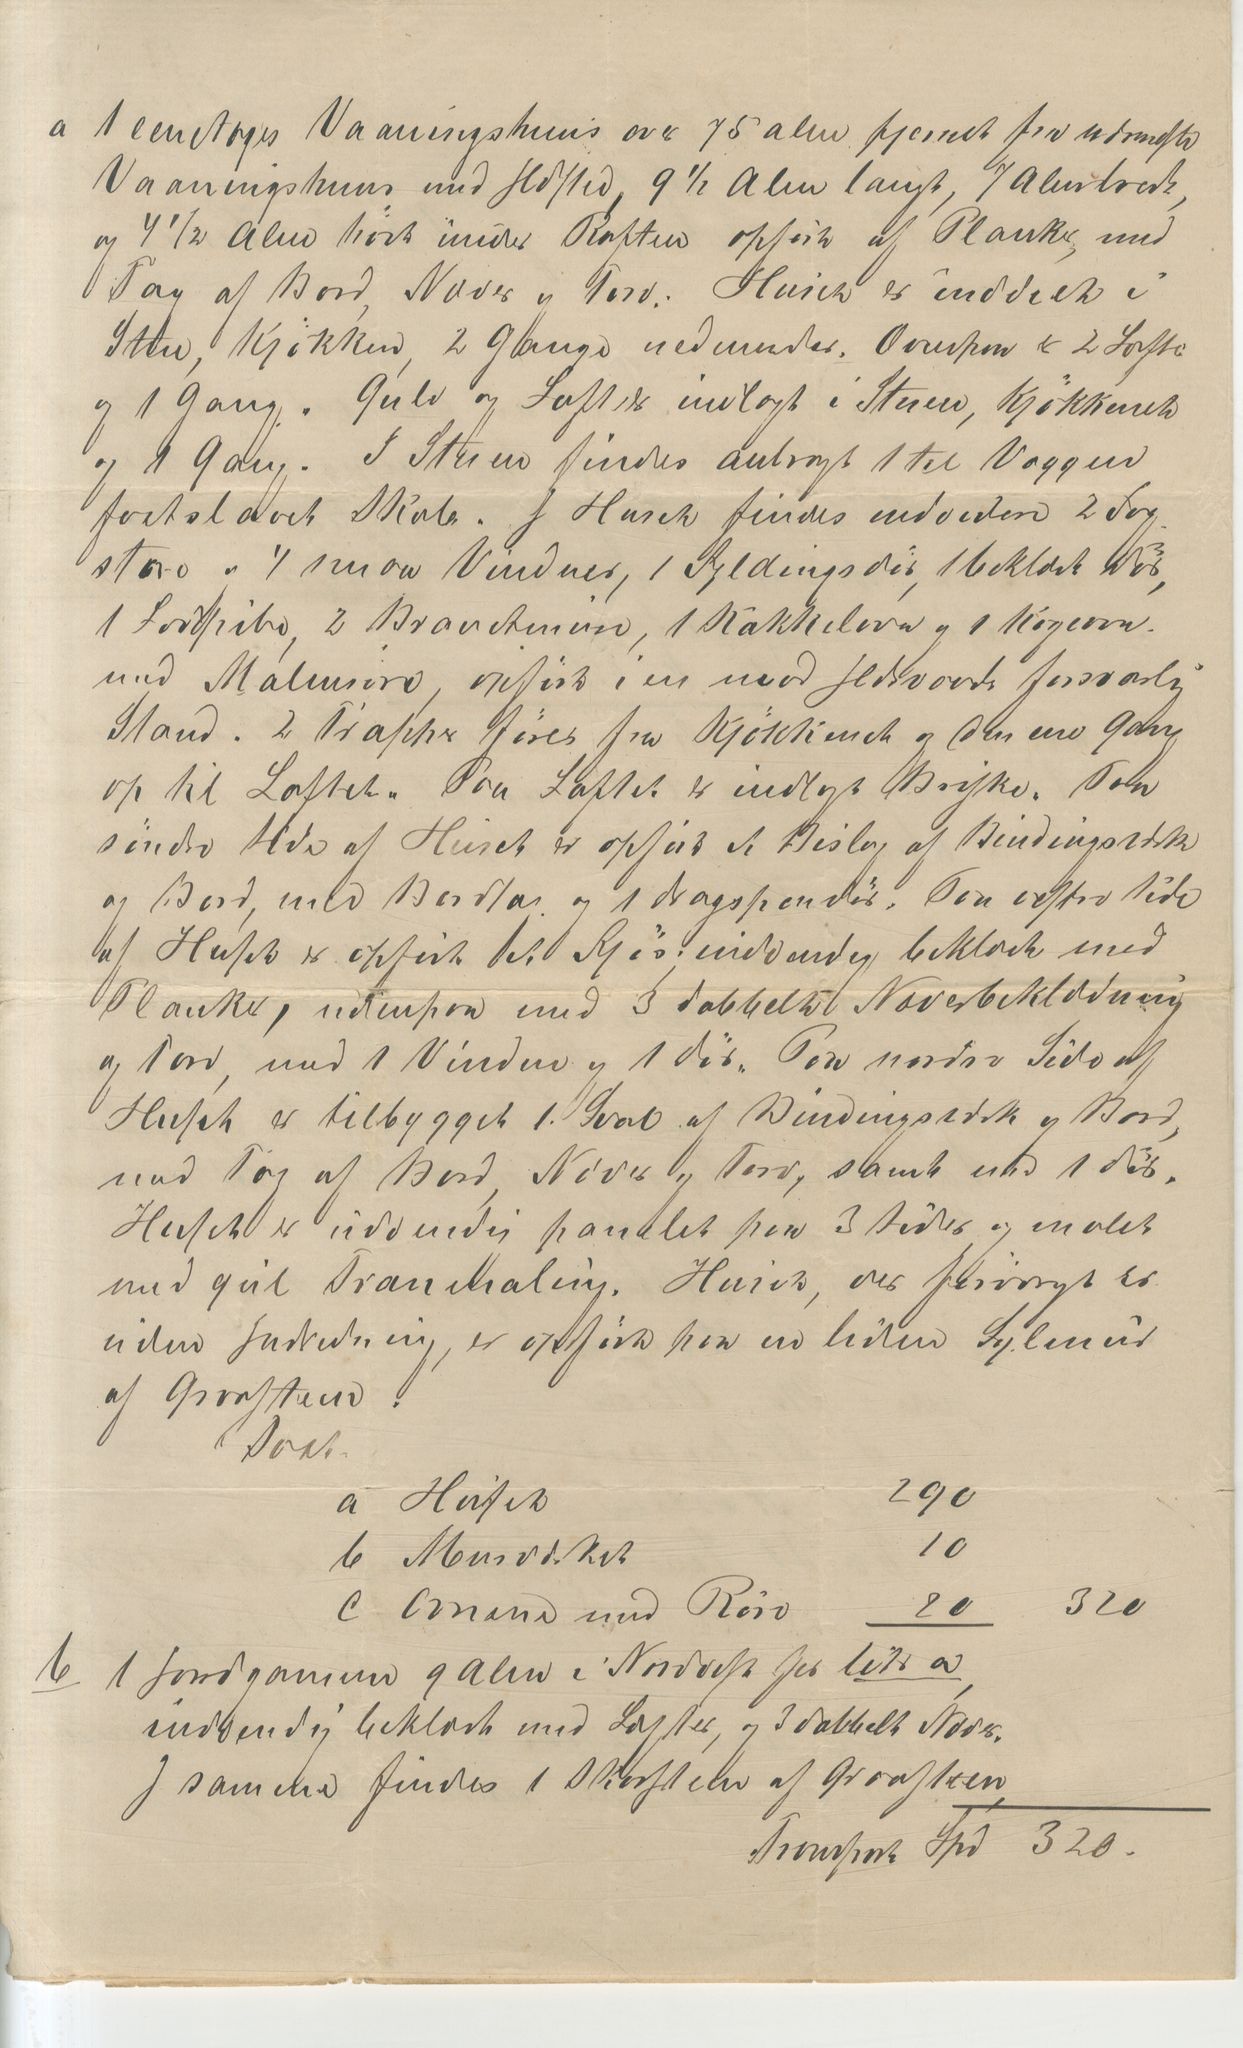 a 1 eenetages Vaaningshuus over 75 alen fjernet fra nærmeste
Vaaningshuus med Ildsted, 9 1/2 Alen langt, 7 Alen bredt,
og 4 1/2 Alen höit under Raften opfört af Planker, med
Tag af Bord, Næver og Torv. Huset er inddelt i
Stue, Kjökken, 2 Gange nedenunder. Ovenpaa er 2 Lofte
og 1 Gang. Gulv og Loft er indlagt i Stuen, Kjökkenet
og 1 Gang. I Stuen findes anbragt 1 til Væggen
fastslaaet Skab. I Huset findes endvidere 2 Fag
store og 4 smaa Vinduer, 1 Fyldingsdör, 1 beklædt Dör,
1 Jordpibe, 2 Brandmure, 1 Kakkelovn og 1 Kogeovn
med Malmrör, opfört i en mod Ildsvaade forsvarlig
Stand. 2 Trapper förer fra Kjökkenet og den ene Gang
op til Loftet. Paa Loftet er indlagt Briske. Paa
söndre Side af Huset er opfört et Bislag af Bindingsværk
og Bord, med Bordtag og 1 dragspendör. Paa östre Side
af Huset er opfört et Fjös, indvendig beklædt med
Planker, udenpaa med 3 dobbelt Næverbeklædning
og Torv, med 1 Vindue og 1 dör. Paa nordre Side af
Huset er tilbygget 1 Sval af Bindingsværk og Bord,
med Tag af Bord, Næver og Torv, samt med 1 dör.
Huset er udvendig panelet paa 3 Sider og malet
med guul Tranmaling. Huset, der forövrigt er
uden Indredning, er opfört paa en liden Sylmuur
af Graasteen.
Taxt.
a Huset 290
b Muurværket 10
c Ovnene med Röre 20 320
b 1 Jordgamme 9 Alen i Nordvest for litr a
indvendig beklædt med Lægter, og 3 dobbelt Næver.
I samme findes 1 Skorsteen af Graasteen
Transport Spd 320.